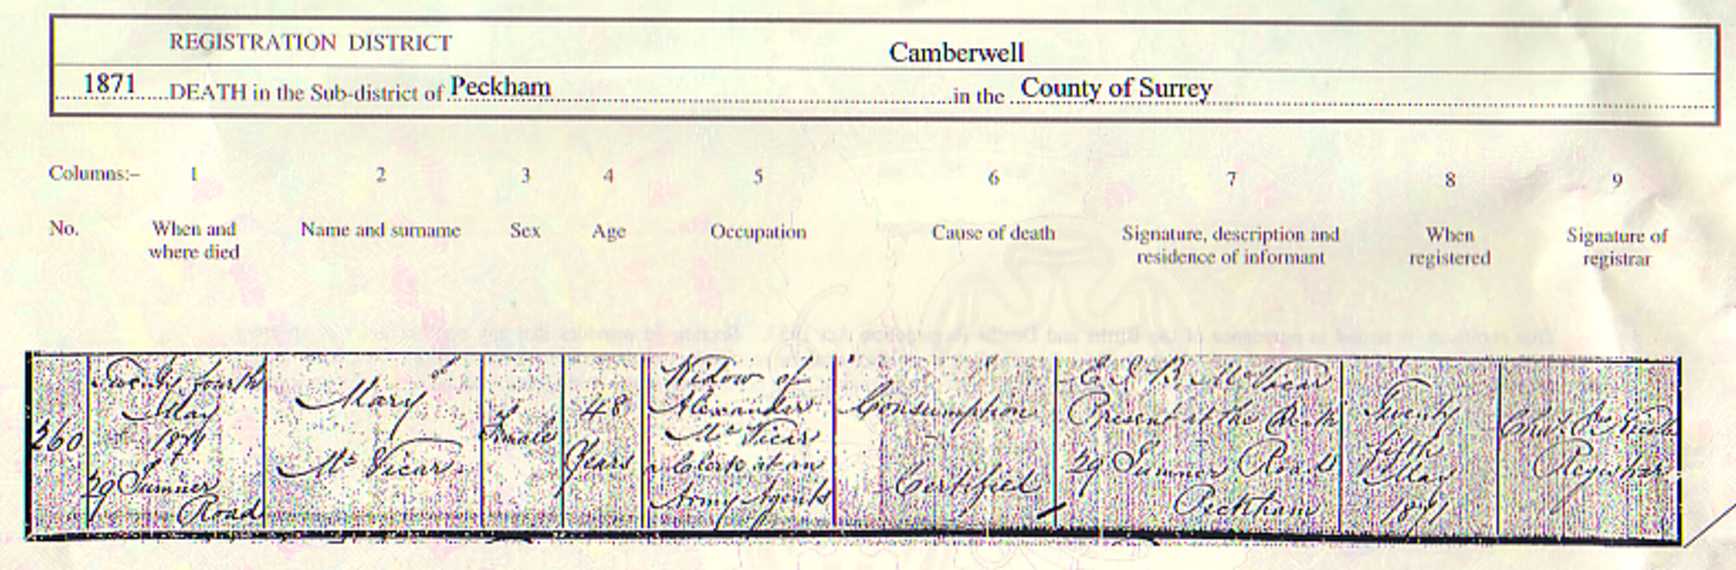 REGISTRATION DISTRICT Camberwell
1871 DEATH in the Sub-district of Peckham in the County of Surrey
Columns:- 1 2 3 4 5 6 7 8 9
No. When and where died Name and surname Sex Age Occupation Cause of death Signature, description and residence of informant When registered Signature of registrar
260
Twenty fourth
May
1871
29 Sumner
Road
Mary
McVicar
Female
48
Years
Widow of
Alexander
McVicar
a Clerk at an
Army Agents
Consumption
Certified
E. J. B. McVicar
Present at the Death
29 Sumner Road
Peckham
Twenty
fifth
May
1871
Registrar